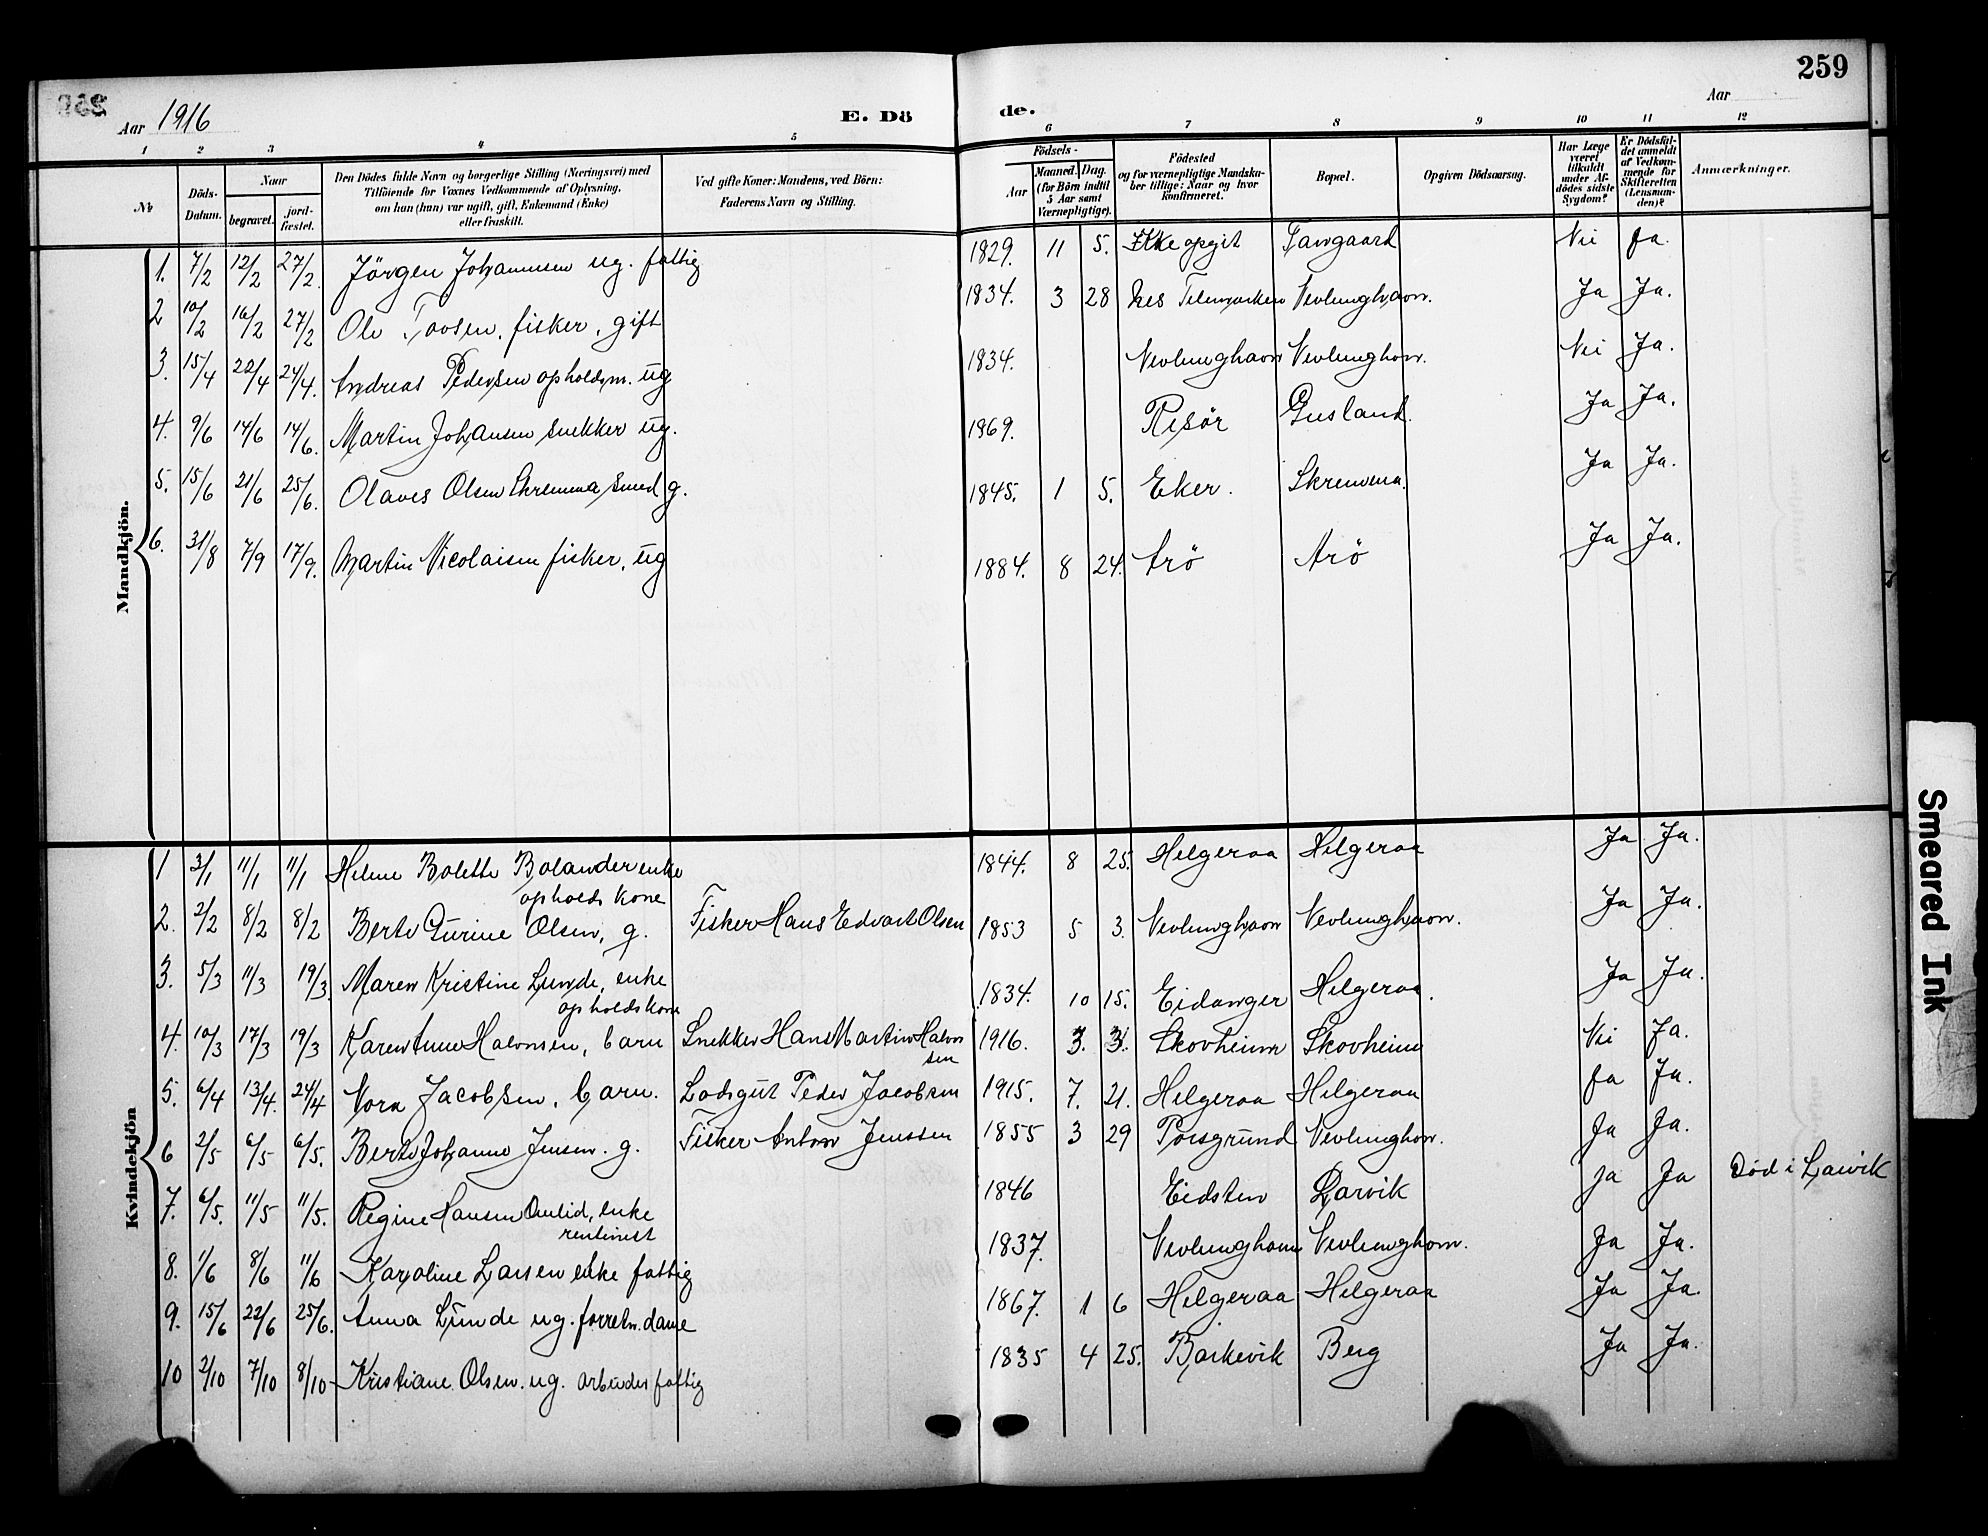 259
Aar 1916 E. Dö de. Aar
1 2 3 4 5 6 7 8 9 10 11 12
№ Döds-Datum. Naar begravet. jord-fæstet. Den Dödes fulde Navn og borgerlige Stilling (Næringsvei) med Tilföiende for Voxnes Vedkommende af Oplysning, om han (hun) var ugift, gift, Enkemand (Enke) eller fraskilt. Ved gifte Koner: Mandens, ved Börn: Faderens Navn og Stilling. Födsels- Aar Maaned. Dag. (for Börn indtil 5 Aar samt Værnepligtige). Födested og for værnepligtige Mandskaber tillige: Naar og hvor Konfirmeret. Bopæl. Opgiven Dödsaarsag. Har Læge været tilkaldt under Afdödes sidste Sygdom? Er Dödsfaldet anmeldt af Vedkommende for Skifteretten (Lensmanden)? Anmærkninger.
Mandkjön.
1. 7/2 12/2 27/2. Jörgen Johannesen ug. fattig 1829. 11 5. Ikke opgit Nei Ja.
2 10/2 16/2 27/2 Ole Tovsen. fisker, gift 1834. 3 28 Telemarken Nevlunghavn. Ja Ja.
3. 15/4 22/4 24/4. Andreas Pedersen opholdsm. ug 1834. Nevlunghavn Nevlunghavn. Nei Ja.
4. 9/6 14/6 14/6. Martin Johansen snekker ug. 1869. Risør Gusland. Ja Ja.
5. 15/6 21/6 25/6. Olaves Olsen Skremma smed g. 1845. 1 5. Eker. Skremma. Ja Ja.
6. 31/8 7/9 17/9. Martin Nicolaisen fisker, ug 1884. 8 24. Arö Arö Ja Ja.
Kvindekjön
1 3/1 11/1 11/1 Helene Bolette Bolander enke 1844. 8 25. Helgeraa Helgeraa Ja Ja.
opholds kone
2. 2/2 8/2 8/2 Berte Gurine Olsen, g. Fisker Hans Edvart Olsen 1853 5 3. Nevlunghavn Nevlunghavn. Ja Ja.
3. 5/3 11/3 19/3. Maren Kristine Lunde, enke 1834. 10 15. Eidanger Helgeraa. Ja Ja.
opholdskone
4. 10/3 17/3 19/3 Karen Anne Halvorsen, barn Snekker Hans Martin Halvor 1916. 3. 3. Skovheim Skovheim Nei Ja.
sen
5. 6/4 13/4. 24/4 Nora Jacobsen, barn. Lodsgut Peder Jacobsen 1915. 7. 21. Helgeraa Helgeraa Ja Ja.
6 2/5 6/5 6/5. Berte Johanne Jensen. g. Fisker Anton Jenssen 1855 3 29 Porsgrund Nevlunghavn. Ja Ja.
7. 6/5. 11/5 11/5. Regine Hansen Omlid, enke 1846 Eidsten Larvik Ja Ja Död i Larvik
rentinist
8. 1/6 8/6 11/6 Karoline Larsen enke fattig 1837. Nevlunghavn Nevlunghavn. Ja Ja.
9. 15/6 22/6 25/6. Anna Lunde ug. forretn.dame 1867. 1 6 Helgeraa Helgeraa Ja Ja.
10 2/10 7/10 8/10 Kristiane Olsen. ug. arbeider fattig 1835 4 25. Barkevik Berg Ja Ja.
Smeared Ink